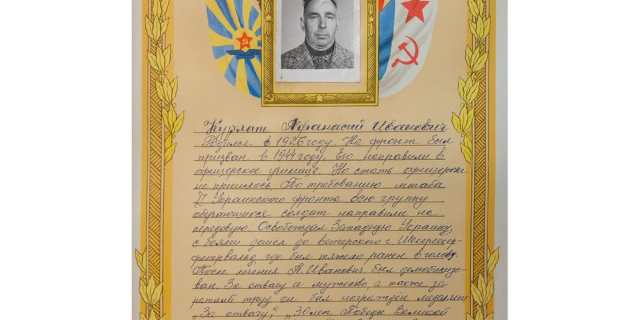 Курлат Афанасий Иванович
Родился в 1926 году. На фронт был
призван в 1944 году. Его направили в
офицерское училище. Но стать офицером
не пришлось. По требованию штаба
II Украинского фронта всю группу
обучающихся солдат направили на
передовую. Освобождал Западную Украину,
с боями дошел до венгерского г. Шекерсфер-
фехервальд, где был тяжело ранен в голову.
После лечения А. Иванович был демобилизо-
ван. За отвагу и мужество, а также за
ратный труд он был награжден медалями
„За отвагу", „30 лет Победы Великой